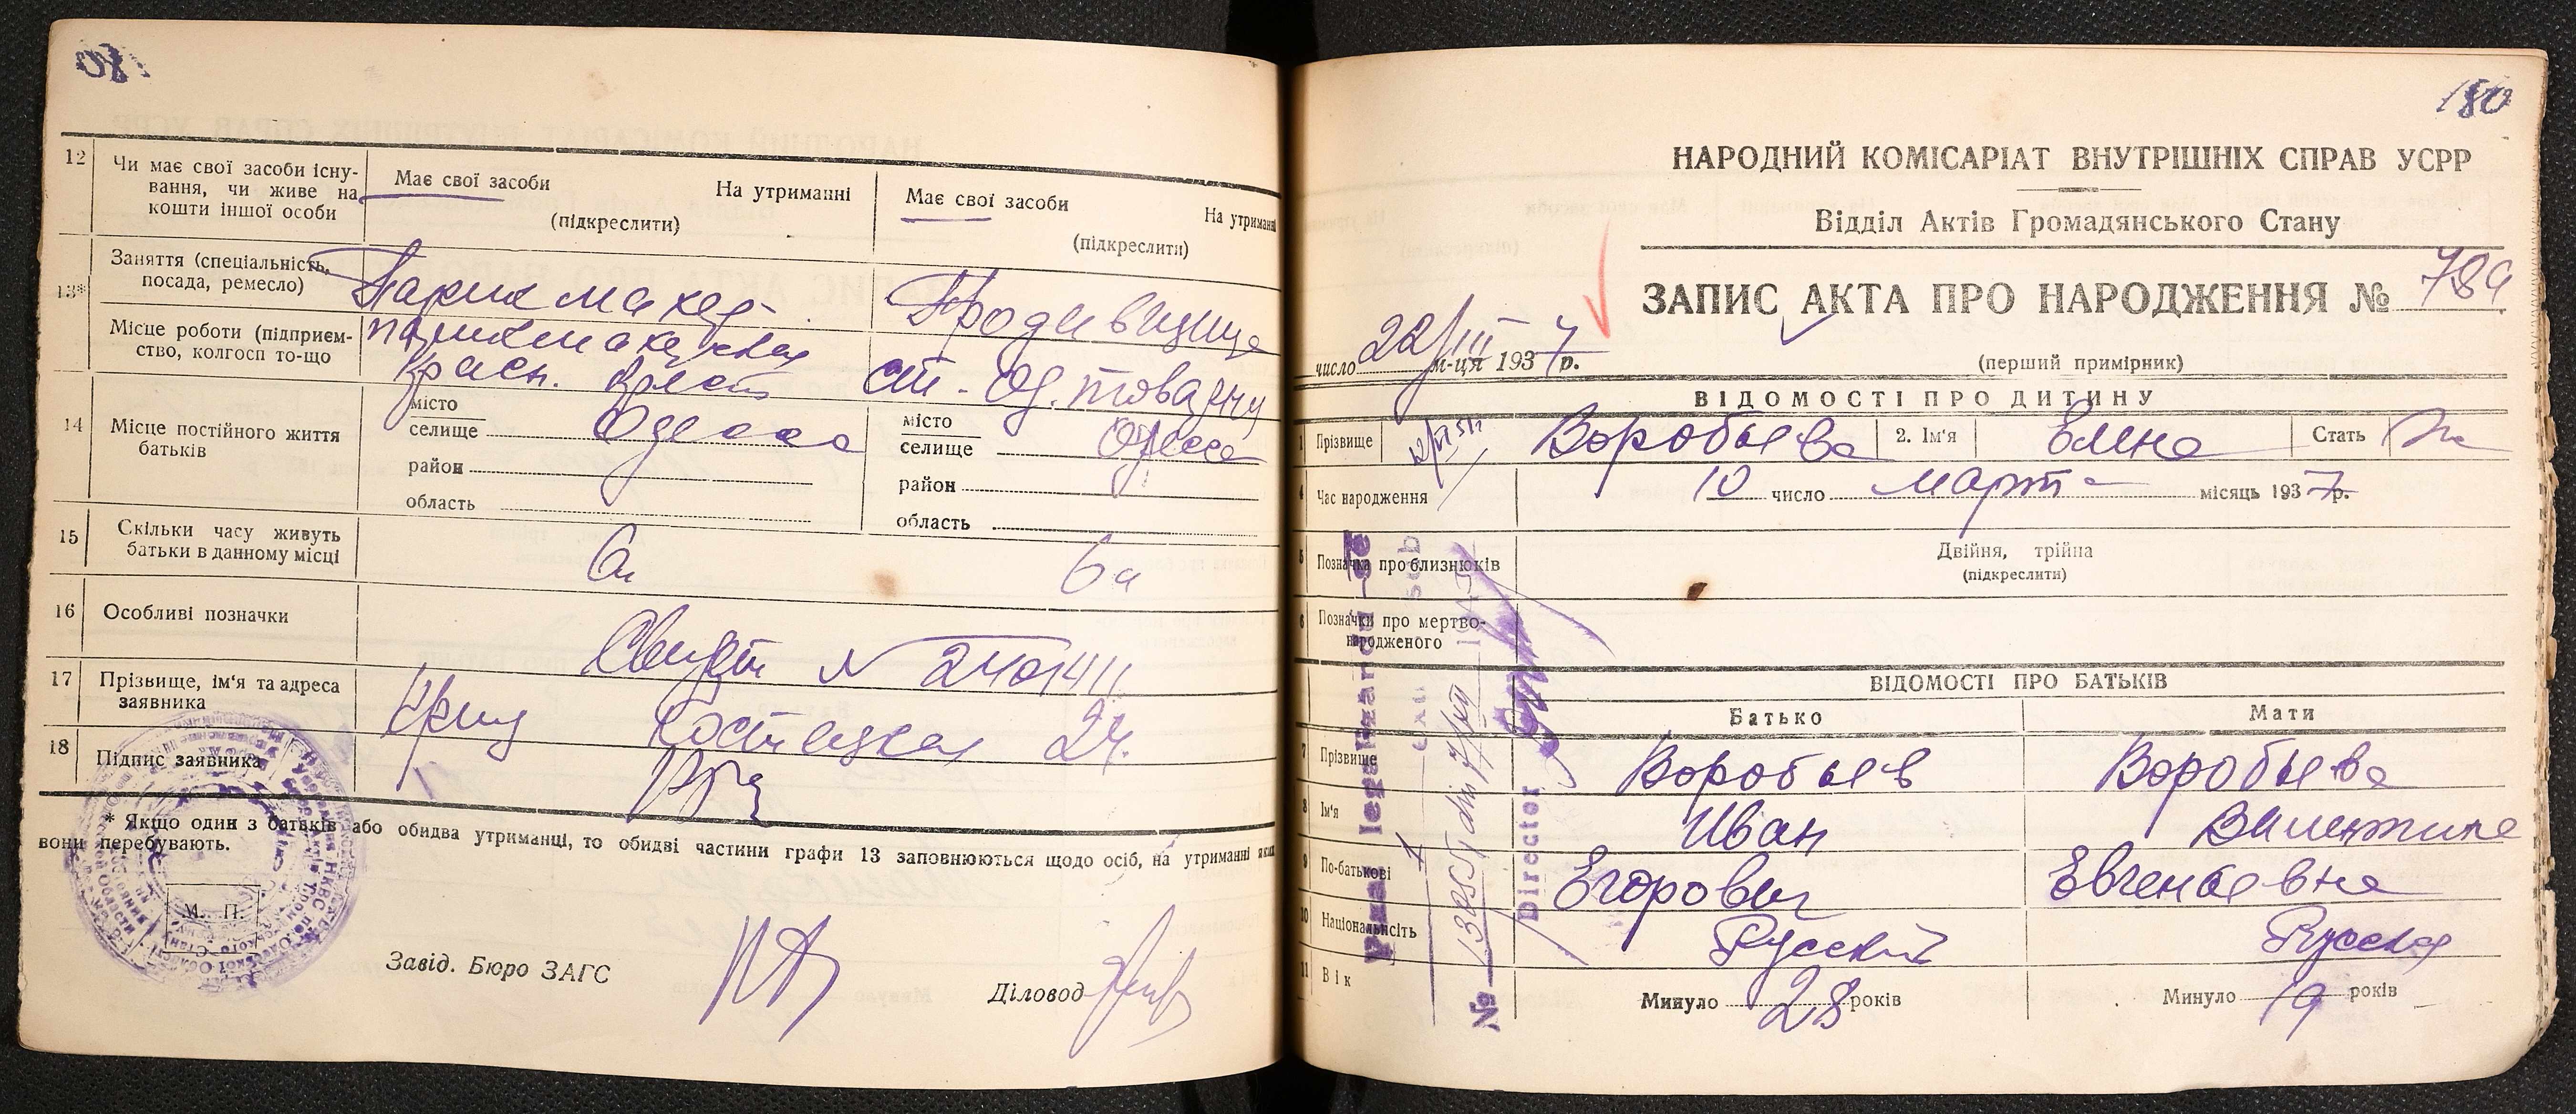 12
Чи має свої засоби існу-
вання, чи живе на
кошти іншої особи
Має свої засоби На утриманні
(підкреслити)
Має свої засоби На утриманні
(підкреслити)
13*
Заняття (спеціальність,
посада, ремесло)
Парикмахер
Продавщица
Місце роботи (підприєм-
ство, колгосп то-що
парикмахерская
Красн.
ст. Од. товарну
14
Місце постійного життя
батьків
місто
селище Одесса
район
область
місто
селище Одесса
район
область
15
Скільки часу живуть
батьки в данному місці
6л
6л
16
Особливі позначки
17
Прізвище, ім'я та адреса
заявника
№ 2401411
Костецкая 24.
18
Підпис заявника
* Якщо один з батьків або обидва утриманці, то обидві частини графи 13 заповнюються щодо осіб, на утриманні яких
вони перебувають.
М. П.
Завід. Бюро ЗАГС
Діловод
180
НАРОДНИЙ КОМІСАРІАТ ВНУТРІШНІХ СПРАВ УСРР
Відділ Актів Громадянського Стану
ЗАПИС АКТА ПРО НАРОДЖЕННЯ № 784
число 22/III м-ця 1937 р.
(перший примірник)
ВІДОМОСТІ ПРО ДИТИНУ
1 Прізвище Воробьева 2. Ім'я Елена Стать ж
4 Час народження 10 число март місяць 1937 р.
5 Позначка про близнюків
Двійня, трійна
(підкреслити)
6 Позначки про мертво-
народженого
ВІДОМОСТІ ПРО БАТЬКІВ
Батько Мати
7 Прізвище Воробьев Воробьева
8 Ім'я Иван Валентина
9 По-батькові Егорович Евгеньевна
10 Національність Русский Русская
11 Вік Минуло 28 років Минуло 19 років
Director